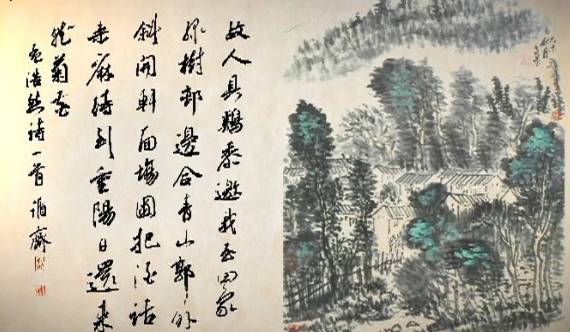 故人具鷄黍邀我至田家
綠樹邨邊合青山郭外
斜開軒面場圃把酒話
桒麻待到重陽日還來
就菊花
孟浩然詩一首